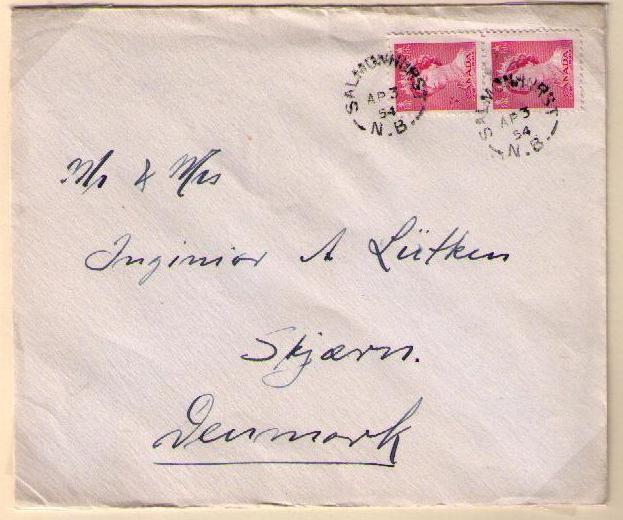 SALMONHURST
AP 3
54
N.B.
CANADA
SALMONHURST
AP 3
54
N.B.
CANADA
Mr & Mrs
Inginiør A Lütken
Skjærn.
Denmark